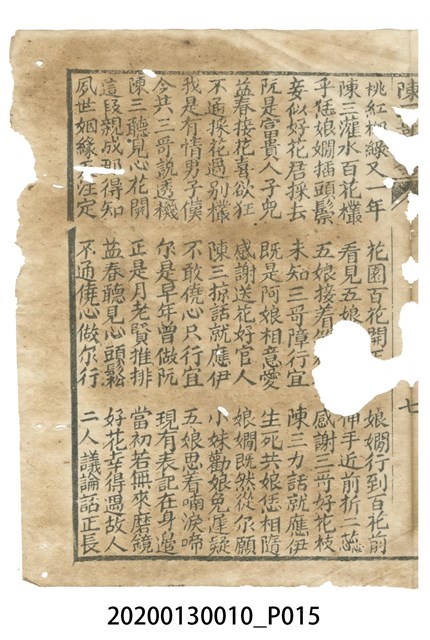 陳
七
桃紅柳綠又一年 花園百花開 娘嫺行到百花前
陳三灌水百花欉 看見五娘 伸手近前折二蕊
乎恁娘嫺插頭鬃 五娘接着 感謝三哥好花枝
妾似好花君採去 未知三哥障行宜 陳三力話就應伊
阮是富貴人子兒 既是阿娘相意愛 生死共娘恁相隨
益春接花喜欲狂 感謝送花好官人 娘嫺既然從尔願
不通採花過別欉 陳三掠話就應伊 小妹勸娘免僥疑
我是有情男子漢 不敢僥心只行宜 五娘思着喃淚啼
今共三哥說透機 尔是早年曾做阮 現有表記在身邊
陳三聽見心花開 正是月老賢推排 當初若無來磨鏡
這段親成那得知 益春聽見心頭鬆 好花幸得遇故人
夙世姻緣注定 不通僥心做尔行 二人議論話正長
20200130010_P015